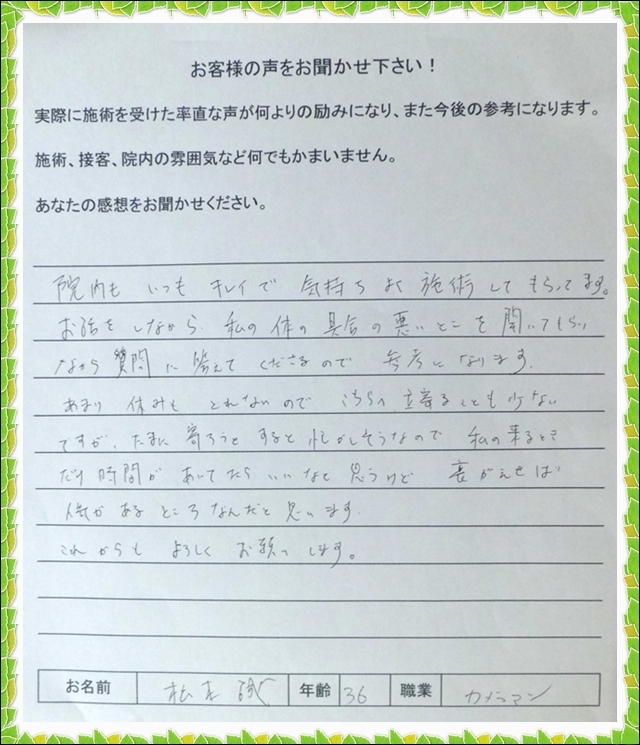 お客様の声をお聞かせ下さい！
実際に施術を受けた率直な声が何よりの励みになり、また今後の参考になります。
施術、接客、院内の雰囲気など何でもかまいません。
あなたの感想をお聞かせください。
院内も いつも キレイで 気持ちよく 施術してもらってます。
お話をしながら、私の体の具合の悪いとこを聞いてもらい
ながら質問に答えてくださるので 参考になります。
あまり 休みも とれないので こちらへ 立寄ることも少ない
ですが、たまに寄ろうとすると忙がしそうなので 私の来るとき
だけ時間が あいてたらいいなと思うけど 裏がえせば
人気があるところなんだと思います。
これからも よろしく お願いします。
お名前 松本 誠 年齢 36 職業 カメラマン